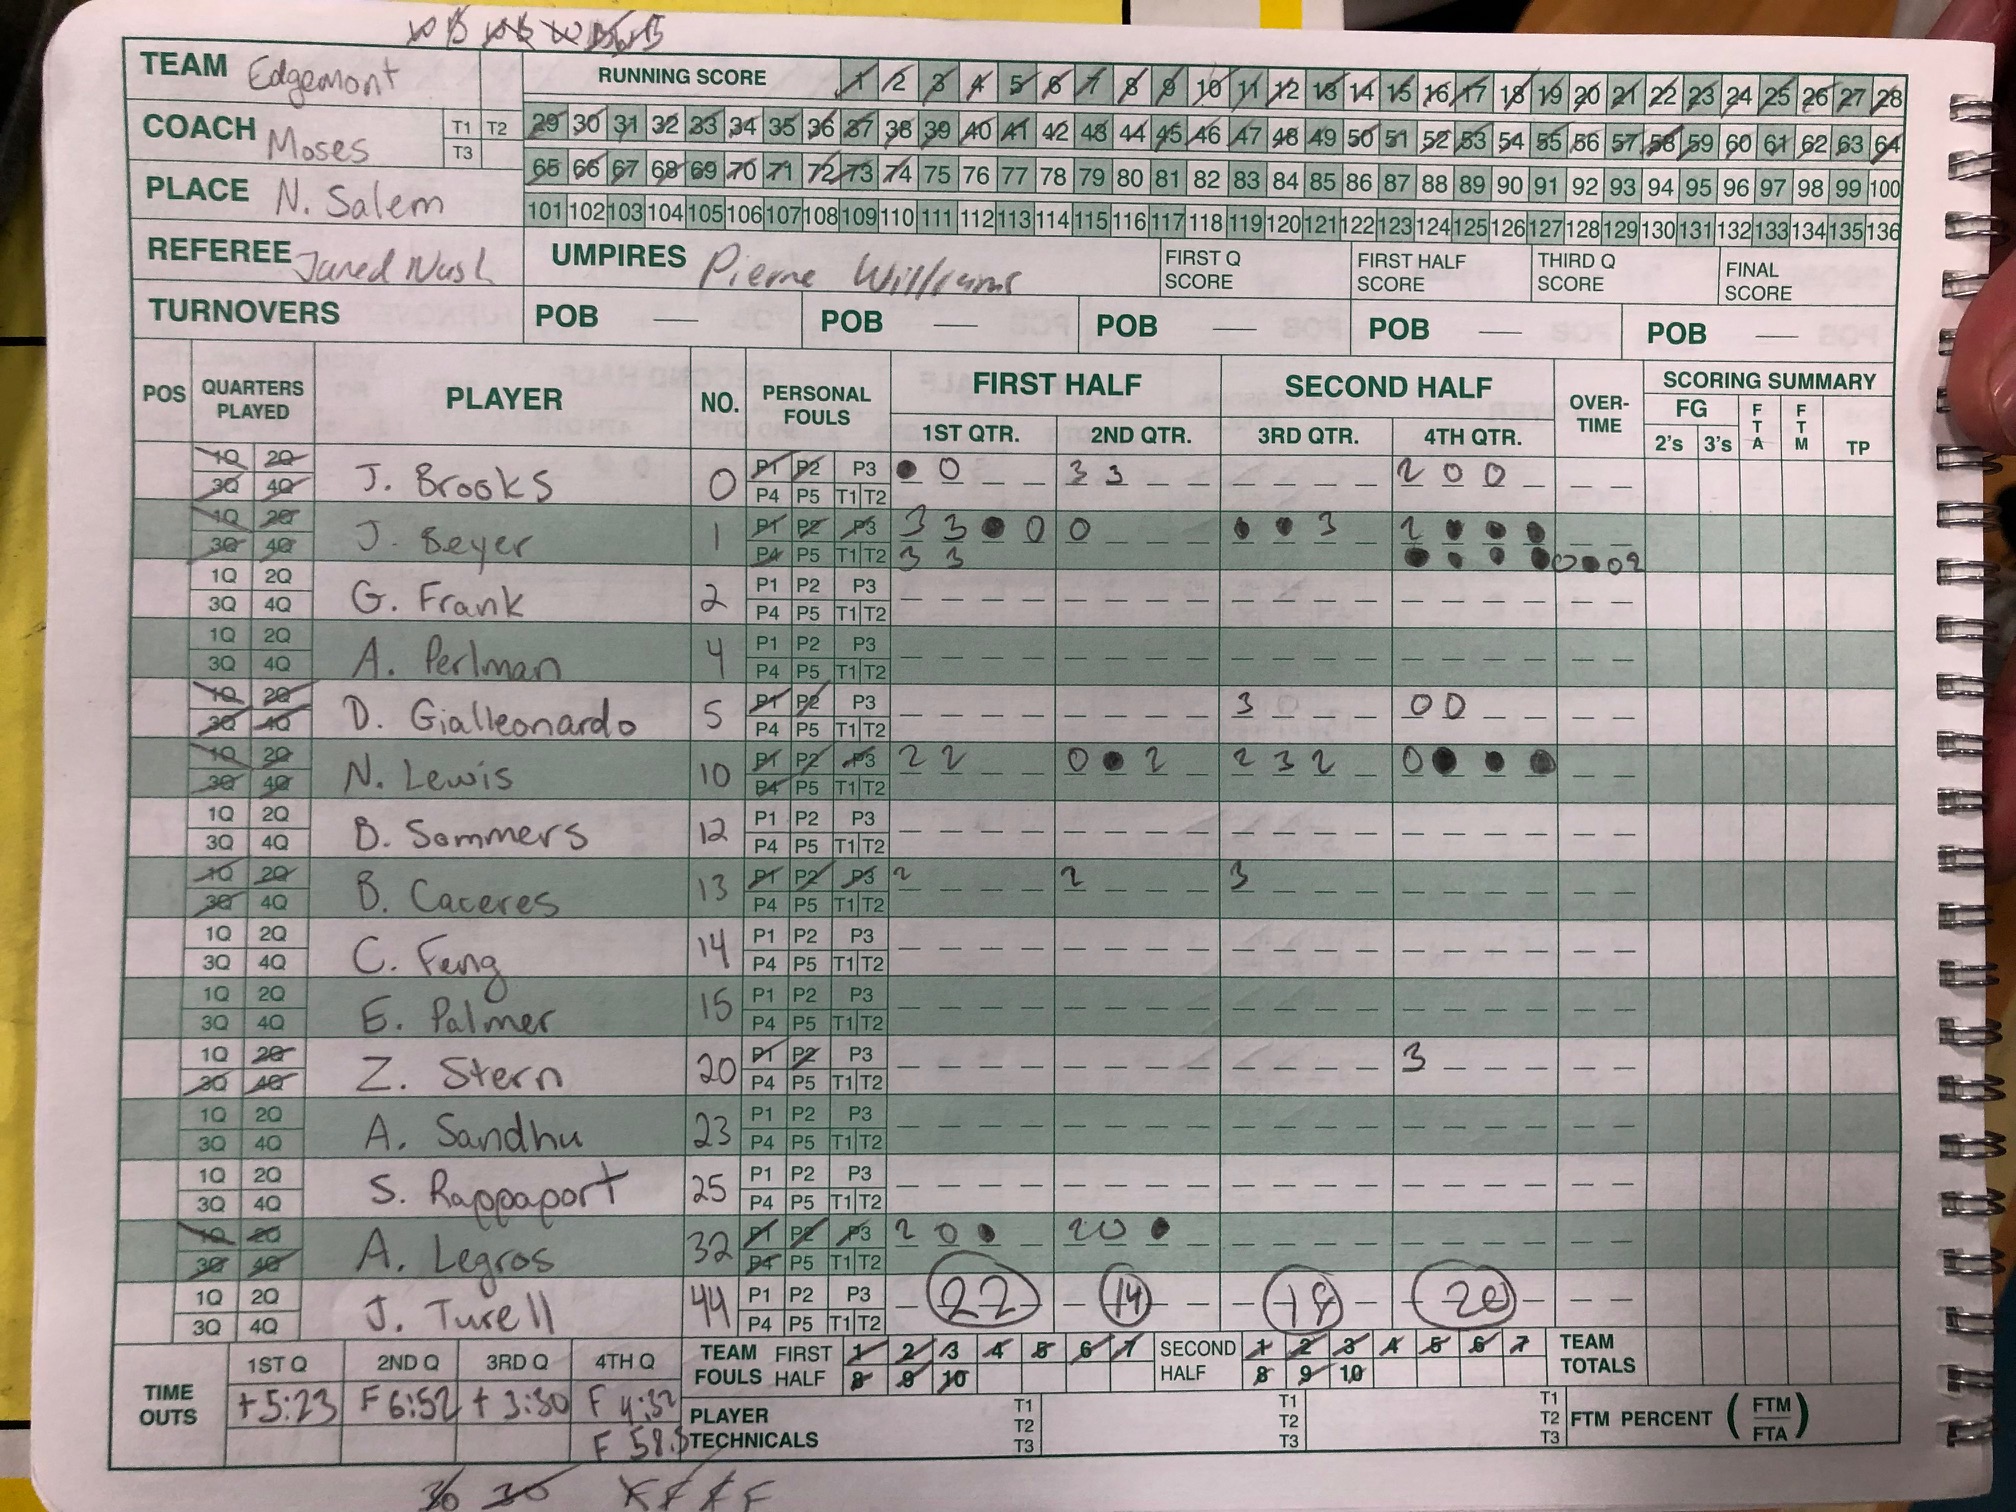 TEAM Edgemont RUNNING SCORE 1 2 3 4 5 6 7 8 9 10 11 12 13 14 15 16 17 18 19 20 21 22 23 24 25 26 27 28
COACH Moses T1 T2 T3 29 30 31 32 33 34 35 36 37 38 39 40 41 42 43 44 45 46 47 48 49 50 51 52 53 54 55 56 57 58 59 60 61 62 63 64
65 66 67 68 69 70 71 72 73 74 75 76 77 78 79 80 81 82 83 84 85 86 87 88 89 90 91 92 93 94 95 96 97 98 99 100
PLACE N. Salem 101 102 103 104 105 106 107 108 109 110 111 112 113 114 115 116 117 118 119 120 121 122 123 124 125 126 127 128 129 130 131 132 133 134 135 136
REFEREE Jared Nash UMPIRES Pierre Williams FIRST Q SCORE FIRST HALF SCORE THIRD Q SCORE FINAL SCORE
TURNOVERS POB — POB — POB — POB — POB —
POS QUARTERS PLAYED PLAYER NO. PERSONAL FOULS FIRST HALF SECOND HALF OVER-TIME SCORING SUMMARY
1ST QTR. 2ND QTR. 3RD QTR. 4TH QTR. FG 2's 3's FTA FTM TP
1Q 2Q J. Brooks 0 P1 P2 P3 ● 0 3 3 2 0 0
3Q 4Q P4 P5 T1 T2
1Q 2Q J. Beyer 1 P1 P2 P3 3 3 ● 0 0 ● ● 3 2 ● ● ●
3Q 4Q P4 P5 T1 T2 3 3 ● ● ● ● 0 ● 0 2
1Q 2Q G. Frank 2 P1 P2 P3
3Q 4Q P4 P5 T1 T2
1Q 2Q A. Perlman 4 P1 P2 P3
3Q 4Q P4 P5 T1 T2
1Q 2Q D. Gialleonardo 5 P1 P2 P3 3 0 0
3Q 4Q P4 P5 T1 T2
1Q 2Q N. Lewis 10 P1 P2 P3 2 2 0 ● 2 2 3 2 0 ● ● ●
3Q 4Q P4 P5 T1 T2
1Q 2Q B. Sommers 12 P1 P2 P3
3Q 4Q P4 P5 T1 T2
1Q 2Q B. Caceres 13 P1 P2 P3 2 2 3
3Q 4Q P4 P5 T1 T2
1Q 2Q C. Feng 14 P1 P2 P3
3Q 4Q P4 P5 T1 T2
1Q 2Q E. Palmer 15 P1 P2 P3
3Q 4Q P4 P5 T1 T2
1Q 2Q Z. Stern 20 P1 P2 P3 3
3Q 4Q P4 P5 T1 T2
1Q 2Q A. Sandhu 23 P1 P2 P3
3Q 4Q P4 P5 T1 T2
1Q 2Q S. Rappaport 25 P1 P2 P3
3Q 4Q P4 P5 T1 T2
1Q 2Q A. Legros 32 P1 P2 P3 2 0 ● 2 0 ●
3Q 4Q P4 P5 T1 T2
1Q 2Q J. Turell 44 P1 P2 P3 22 14 18 20
3Q 4Q P4 P5 T1 T2
TIME OUTS 1ST Q 2ND Q 3RD Q 4TH Q TEAM FOULS FIRST HALF 1 2 3 4 5 6 7 8 9 10 SECOND HALF 1 2 3 4 5 6 7 8 9 10 TEAM TOTALS
+5:23 F 6:52 + 3:30 F 4:32 PLAYER TECHNICALS T1 T2 T3 T1 T2 T3 T1 T2 T3 FTM PERCENT (FTM/FTA)
F 58.
30 30 F F F F